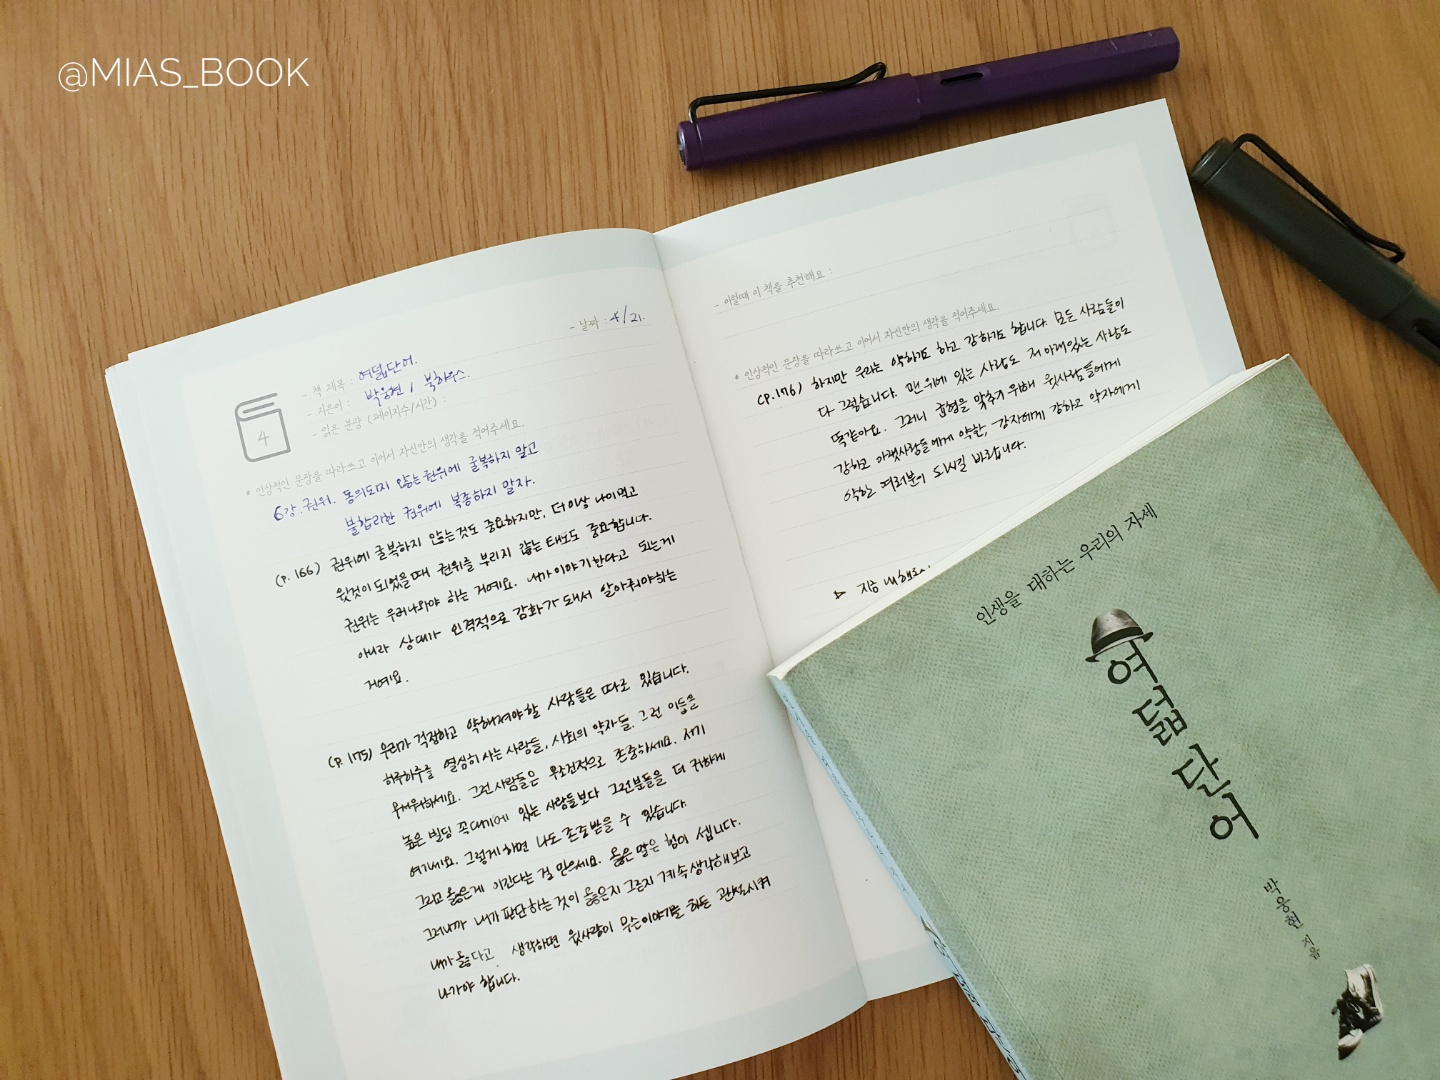 @MIAS_BOOK
- 날짜 : 4/21.
4
- 책 제목 : 여덟단어.
- 지은이 : 박웅현 / 북하우스.
- 읽은 분량 (페이지수/시간) :
• 인상적인 문장을 따라쓰고 이어서 자신만의 생각을 적어주세요.
6강. 권위. 동의되지 않는 권위에 굴복하지 말고
불합리한 권위에 복종하지 말자.
(p. 166) 권위에 굴복하지 않는것도 중요하지만, 더이상 나이먹고
윗것이 되었을때 권위를 부리지 않는 태도도 중요합니다.
권위는 우러나와야 하는 거예요. 내가 이야기한다고 되는게
아니라 상대가 인격적으로 감화가 돼서 알아줘야하는
거예요.
(p. 175) 우리가 걱정하고 약해져야 할 사람들은 따로 있습니다.
하루하루를 열심히 사는 사람들, 사회의 약자들. 그런 이들을
무서워하세요. 그런 사람들은 무조건적으로 존중하세요. 저기
높은 빌딩 꼭대기에 있는 사람들보다 그런분들을 더 귀하게
여기세요. 그렇게 하면 나도 존중받을 수 있습니다.
그리고 옳은게 이긴다는 걸 믿으세요. 옳은 말은 힘이 셉니다.
그러니까 내가 판단하는 것이 옳은지 그른지 계속 생각해보고
내가 옳다고 생각하면 윗사람이 무슨이야기를 하든 관철시켜
나가야 합니다.
- 이럴때 이 책을 추천해요 :
• 인상적인 문장을 따라쓰고 이어서 자신만의 생각을 적어주세요.
(p. 176) 하지만 우리는 약하기도 하고 강하기도 합니다. 모든 사람들이
다 그렇습니다. 맨 위에 있는 사람도 저 아래있는 사람도
똑같아요. 그러니 균형을 맞추기 위해 윗사람들에게
강하고 아랫사람들에게 약한, 강자에게 강하고 약자에게
약한 여러분이 되시길 바랍니다.
▷ 지금 내
인생을 대하는 우리의 자세
여덟 단어
박웅현 지음